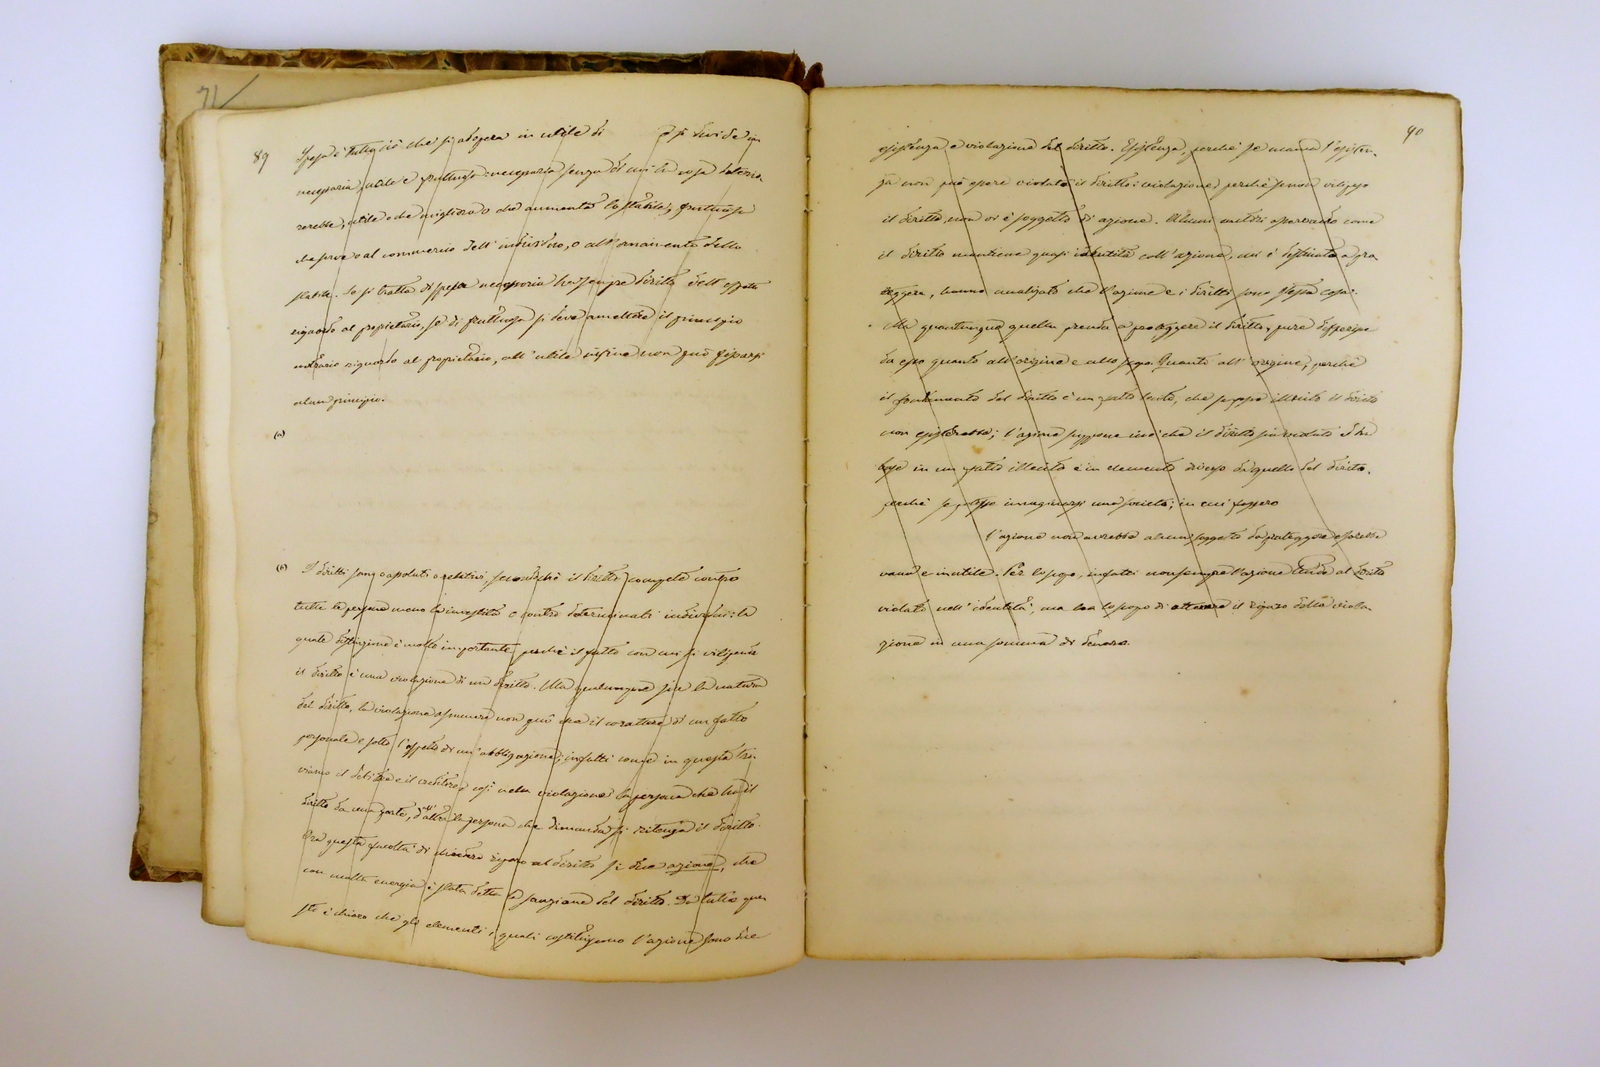 71
89
Spesa è tutto ciò che si adopera in utile di e si divide in
necessaria, utile e fruttuosa: necessaria senza di cui la cosa deterio-
rerebbe; utile che migliora o che aumenta lo stabile; fruttuosa
che serve al commercio dell' individuo, o all' ornamento dello
stabile. Se si tratta di spesa necessaria ha sempre diritto dell'
riguardo al proprietario, se di fruttuosa si deve ammettere il principio
contrario riguardo al proprietario, all' utile infine non può fissarsi
alcun principio.
(a)
(b) I diritti sono o assoluti o relativi, secondochè il diritto compete contro
tutte le persone meno la investita o contro determinati individui: la
quale distinzione è molto importante perchè il fatto con cui si vilipende
il diritto è una violazione di un diritto. Ma qualunque sia la natura
del diritto, la violazione assumere non può che il carattere di un fatto
personale e sotto l'aspetto di un' obbligazione; infatti come in questa tro-
viamo il debitore e il creditore, così nella violazione la persona che ha il
diritto da una parte, dall' altra la persona che dimanda si ritenga il diritto.
Ora questa facoltà di chiedere riparo al diritto si dice azione, che
con molta energia è stata detta la sanzione del diritto. Da tutto que-
sto è chiaro che gli elementi i quali costituiscono l'azione sono due
90
esistenza e violazione del diritto. Esistenza, perchè se manca l'esisten-
za non può essere violato il diritto: violazione, perchè se non vilipeso
il diritto, non vi è soggetto di azione. Alcuni autori osservando come
il diritto mantiene quasi identità coll' azione, cui è destinata a pro-
teggere, hanno analizzato che l'azione e i diritti sono stessa cosa.
Ma quantunque quella prenda a proteggere il diritto, pure differisce
da esso quanto all' origine e allo scopo. Quanto all' origine, perchè
il fondamento del diritto è un fatto lecito, che se fosse illecito il diritto
non esisterebbe; l'azione suppone invece che il diritto sia violato
in un fatto illecito è un elemento diverso da quello del diritto.
perchè se potesse immaginarsi una società, in cui fossero
l'azione non avrebbe alcun soggetto da proteggere e sarebbe
vana e inutile. Per lo scopo, infatti non sempre l'azione tende al diritto
violato nell' identità, ma ha lo scopo di ottenere il riparo della viola-
zione in una somma di denaro.